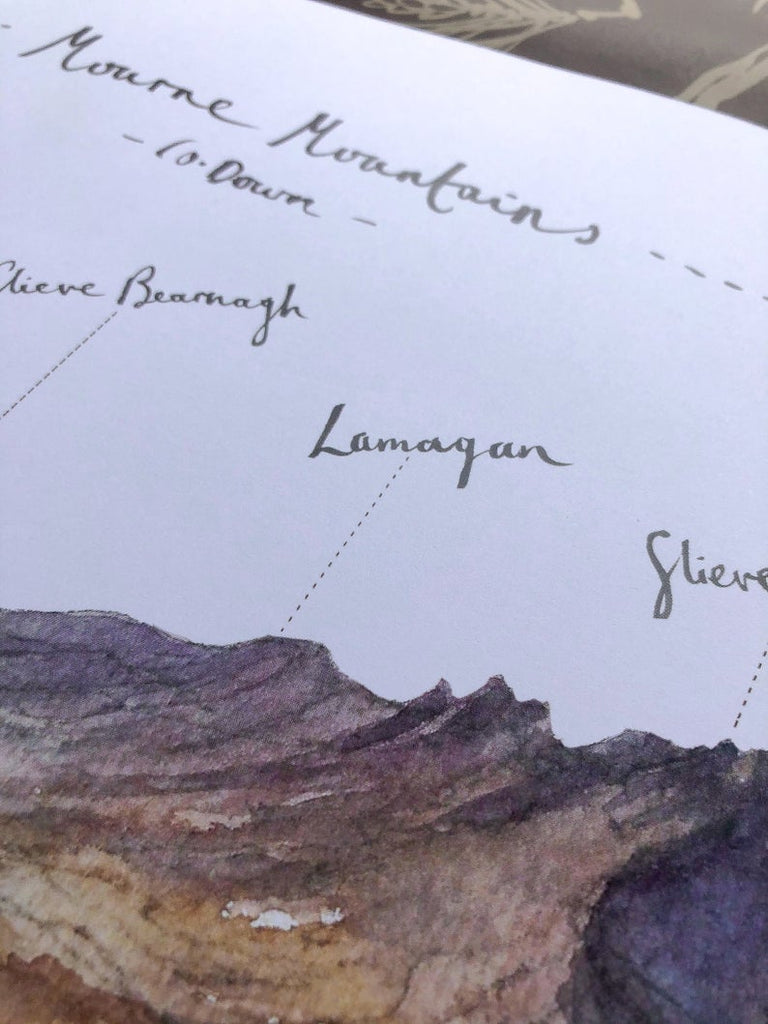 Mourne Mountains
- Co. Down -
Slieve Bearnagh
Lamagan
Slieve